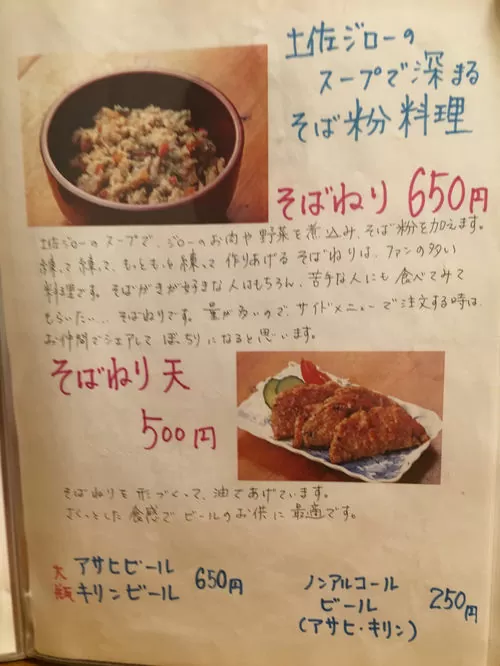 土佐ジローの
スープで深まる
そば粉料理
そばねり 650円
土佐ジローのスープで、ジローのお肉や野菜を煮込み、そば粉を加えます。
練って練って、もっともっと練って作りあげるそばねりは、ファンの多い
料理です。そばがきが好きな人はもちろん、苦手な人にも食べてみて
もらいたい...そばねりです。量が多いので、サイドメニューで注文する時は、
お仲間でシェアしてぼっちりになると思います。
そばねり天
500円
そばねりを形づくって、油であげています。
さくっとした食感でビールのお供に最適です。
大瓶 アサヒビール
キリンビール 650円
ノンアルコール
ビール 250円
(アサヒ・キリン)